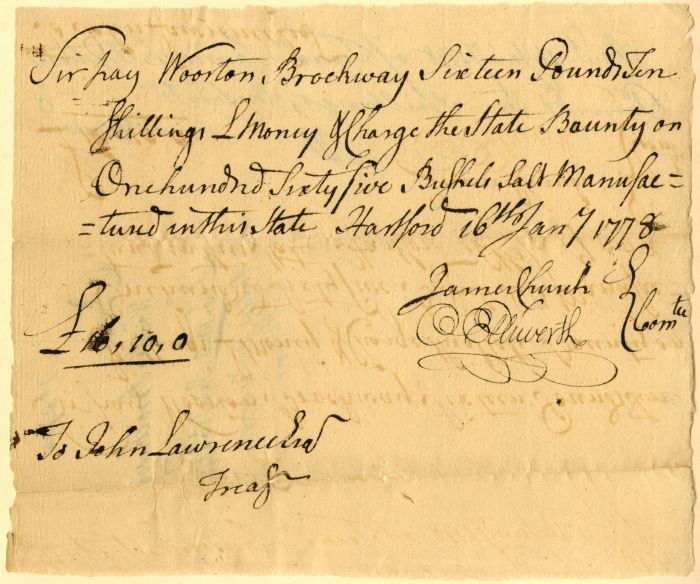 Sir pay Woorton Brockway Sixteen Pounds Ten
Shillings L Money & Charge the State Bounty on
One hundrd Sixty five Bushels Salt Manufac=
=tured in this State Hartford 16th Jany 1778
James Church
O Ellsworth } Comtee
£16,10,0
To John Lawrence Esqr
Treasr